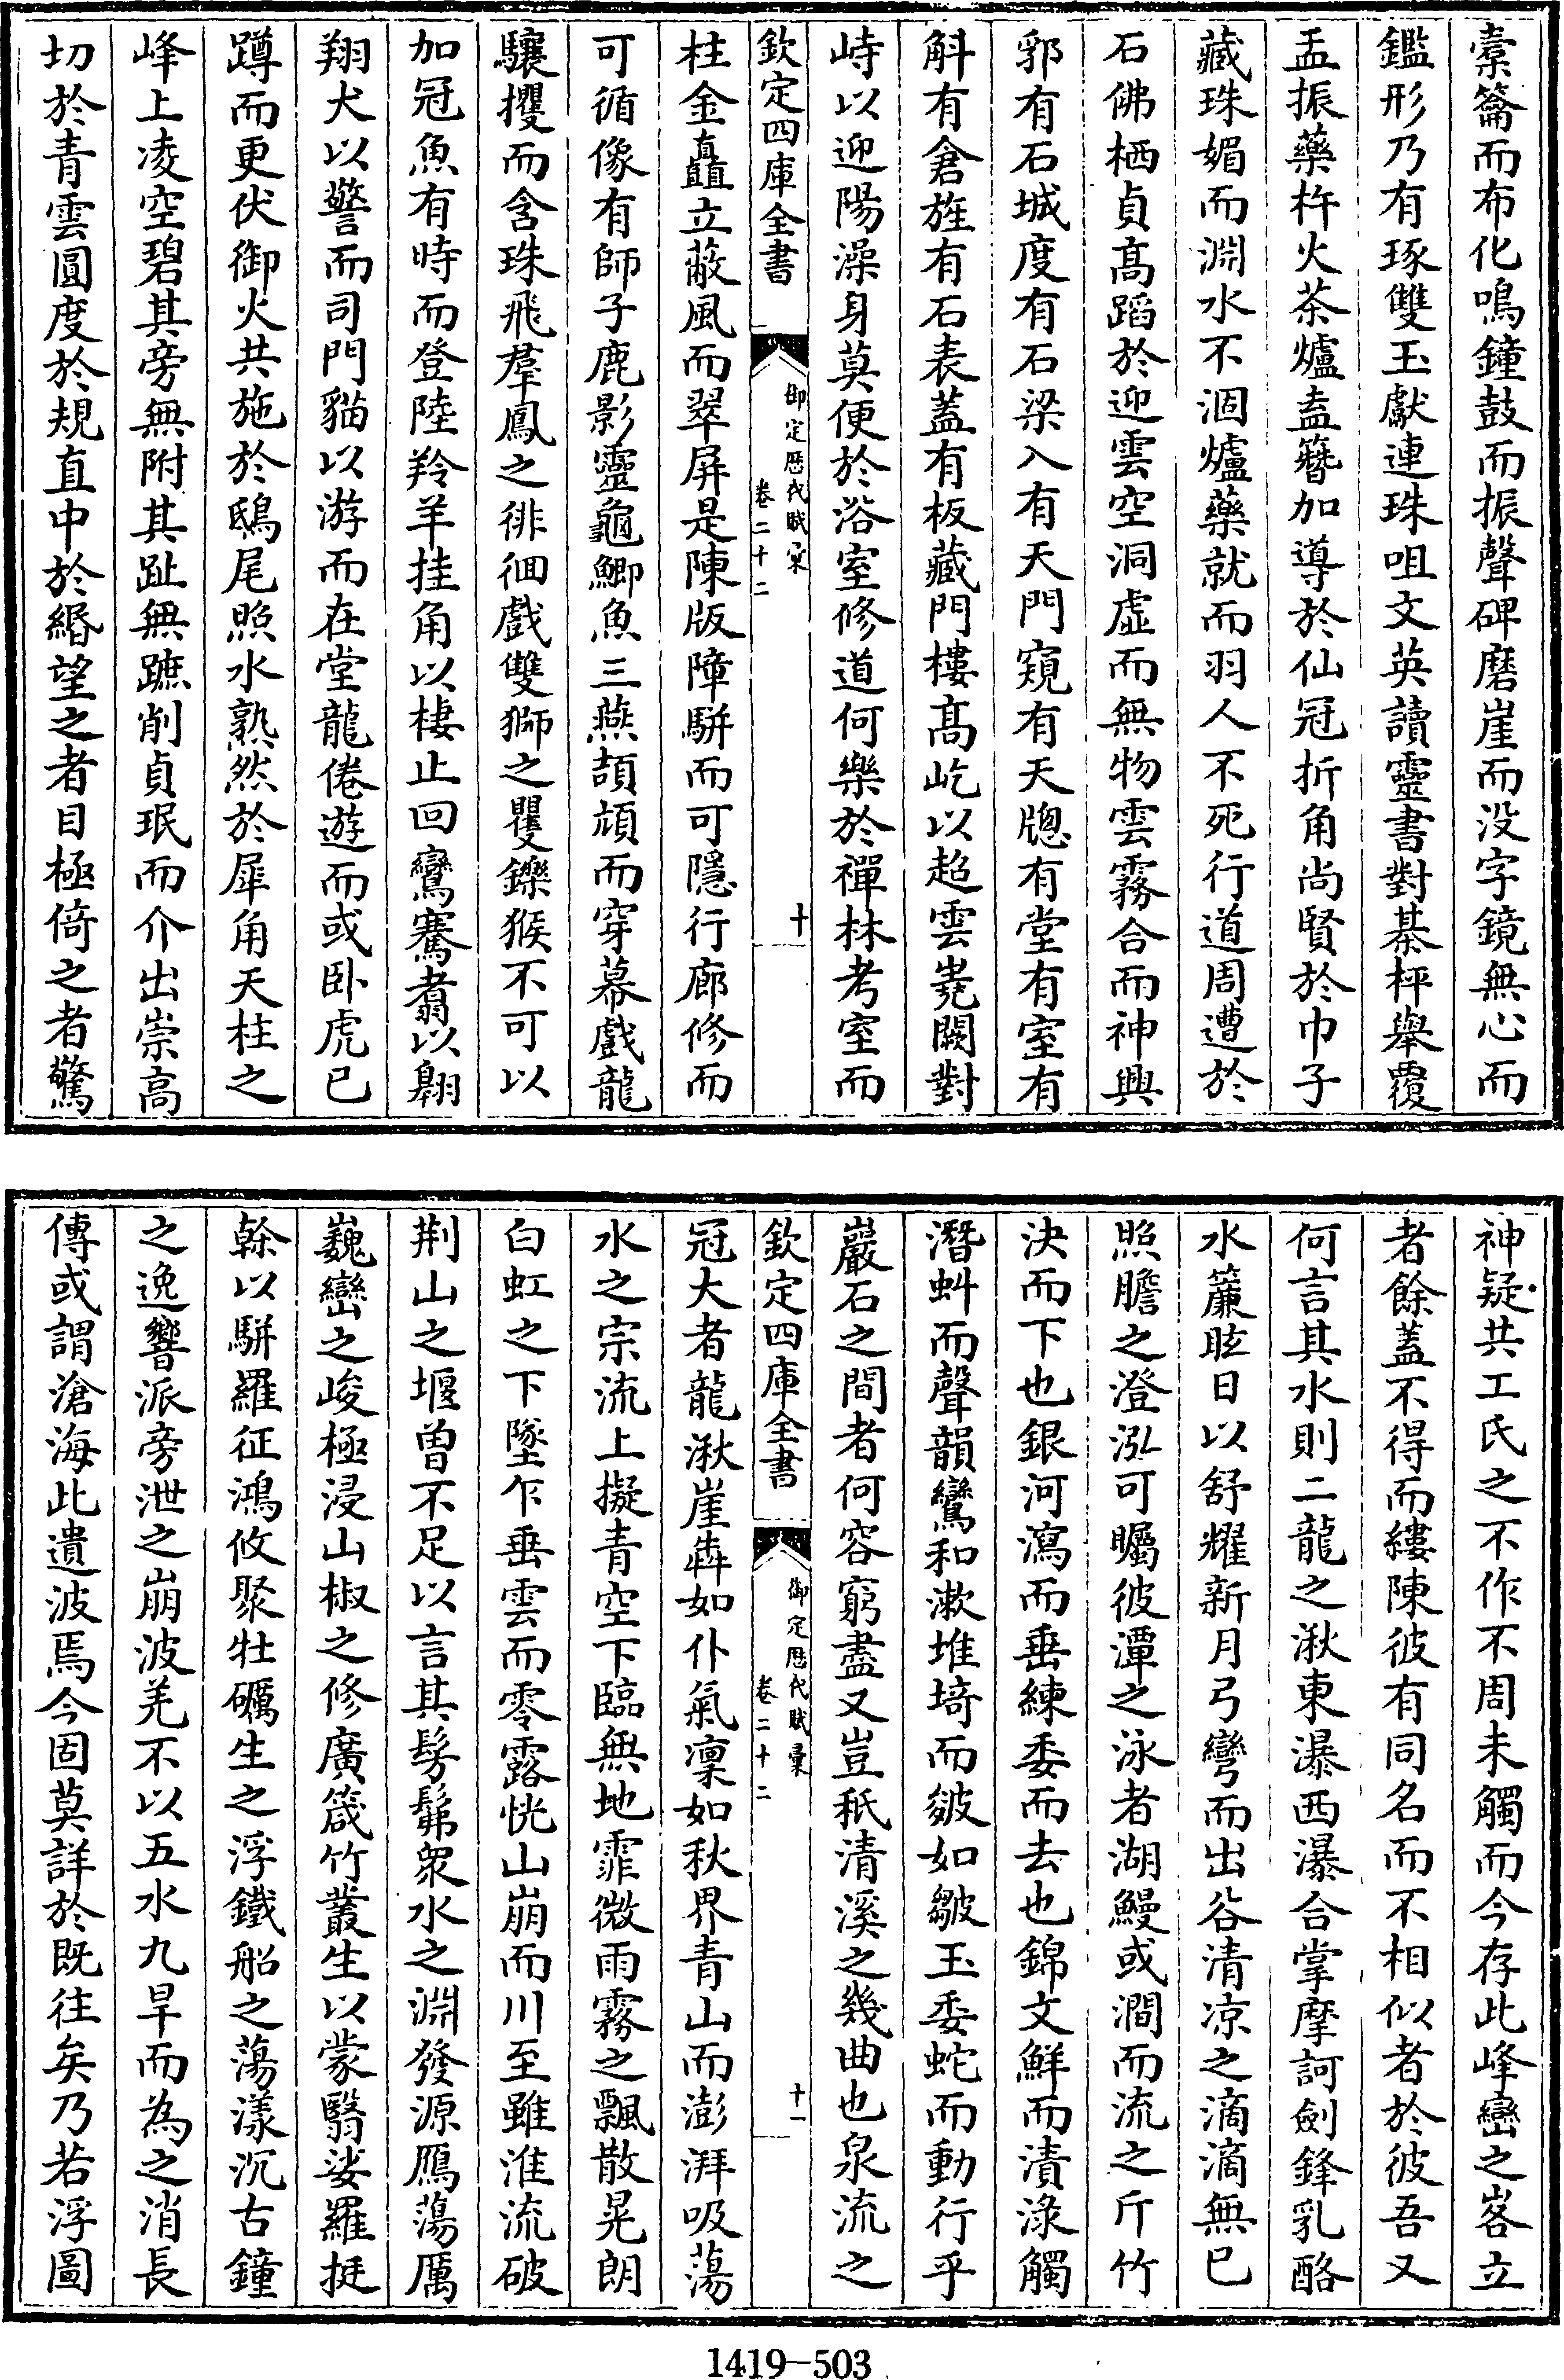 橐籥而布化鳴鐘鼓而振聲碑磨崖而没字鏡無心而
鑑形乃有琢雙玉獻連珠咀文英讀靈書對棊枰舉覆
盂振藥杵火茶爐盍簪加導於仙冠折角尚賢於巾子
藏珠媚而淵水不涸爐藥就而羽人不死行道周遭於
石佛栖貞髙蹈於迎雲空洞虚而無物雲霧合而神興
郛有石城度有石梁入有天門窺有天牎有堂有室有
斛有倉旌有石表蓋有板藏門樓髙屹以超雲嶤闕對
峙以迎陽澡身莫便於浴室修道何樂於禪林考室而
欽定四庫全書
御定歴代賦彚
卷二十二
十
柱金矗立蔽風而翠屏是陳版障駢而可隱行廊修而
可循像有師子鹿影靈龜鯽魚三燕頡頏而穿幕戲龍
驤攫而含珠飛羣鳳之徘徊戲雙獅之矍鑠猴不可以
加冠魚有時而登陸羚羊挂角以棲止回鸞騫翥以翱
翔犬以警而司門貓以游而在堂龍倦遊而或卧虎已
蹲而更伏御火共施於鴟尾照水熟然於犀角天柱之
峰上凌空碧其旁無附其趾無蹠削貞珉而介出崇高
切於青雲圓度於規直中於緡望之者目極倚之者驚
神疑共工氏之不作不周未觸而今存此峰巒之峉立
者餘蓋不得而縷陳彼有同名而不相似者於彼吾又
何言其水則二龍之湫東瀑西瀑合掌摩訶劍鋒乳酪
水簾眩日以舒耀新月弓彎而出谷清凉之滴滴無已
照膽之澄泓可矚彼潭之泳者湖鰻或澗而流之斤竹
決而下也銀河瀉而垂練委而去也錦文鮮而漬淥觸
潛虯而聲韻鸞和漱堆埼而皴如皺玉委蛇而動行乎
巖石之間者何容窮盡又豈秖清溪之幾曲也泉流之
欽定四庫全書
御定歴代賦彙
卷二十二
十一
冠大者龍湫崖犇如仆氣凜如秋界青山而澎湃吸蕩
水之宗流上擬青空下臨無地霏微雨霧之飄散晃朗
白虹之下墜乍垂雲而零露恍山崩而川至雖淮流破
荆山之堰曽不足以言其髣髴衆水之淵發源鴈蕩厲
巍巒之峻極浸山椒之修廣箴竹叢生以蒙翳娑羅挺
榦以駢羅征鴻攸聚牡礪生之浮鐵船之蕩漾沉古鐘
之逸響派旁泄之崩波羌不以五水九旱而為之消長
傳或謂滄海此遺波焉今固莫詳於既往矣乃若浮圖
1419—503